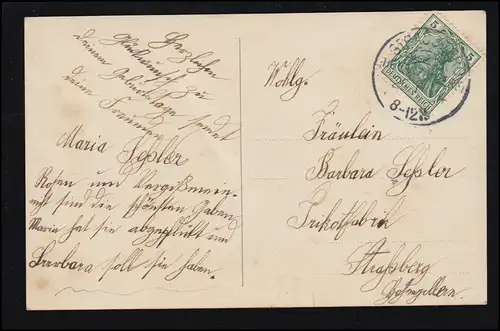 Herzlichen
Glückwunsch zu
deinem Geburtstage sendet
deine Freundin
Maria Teßler
Rosen und Vergißmein-
nicht sind die schönsten Gaben
Maria hat sie abgepflückt und
Barbara soll sie haben.
Wohlg.
Fräulein
Barbara Teßler
Trikotfabrik
Straßberg
Hohenzollern.
5 5
DEUTSCHES REICH
8-12V